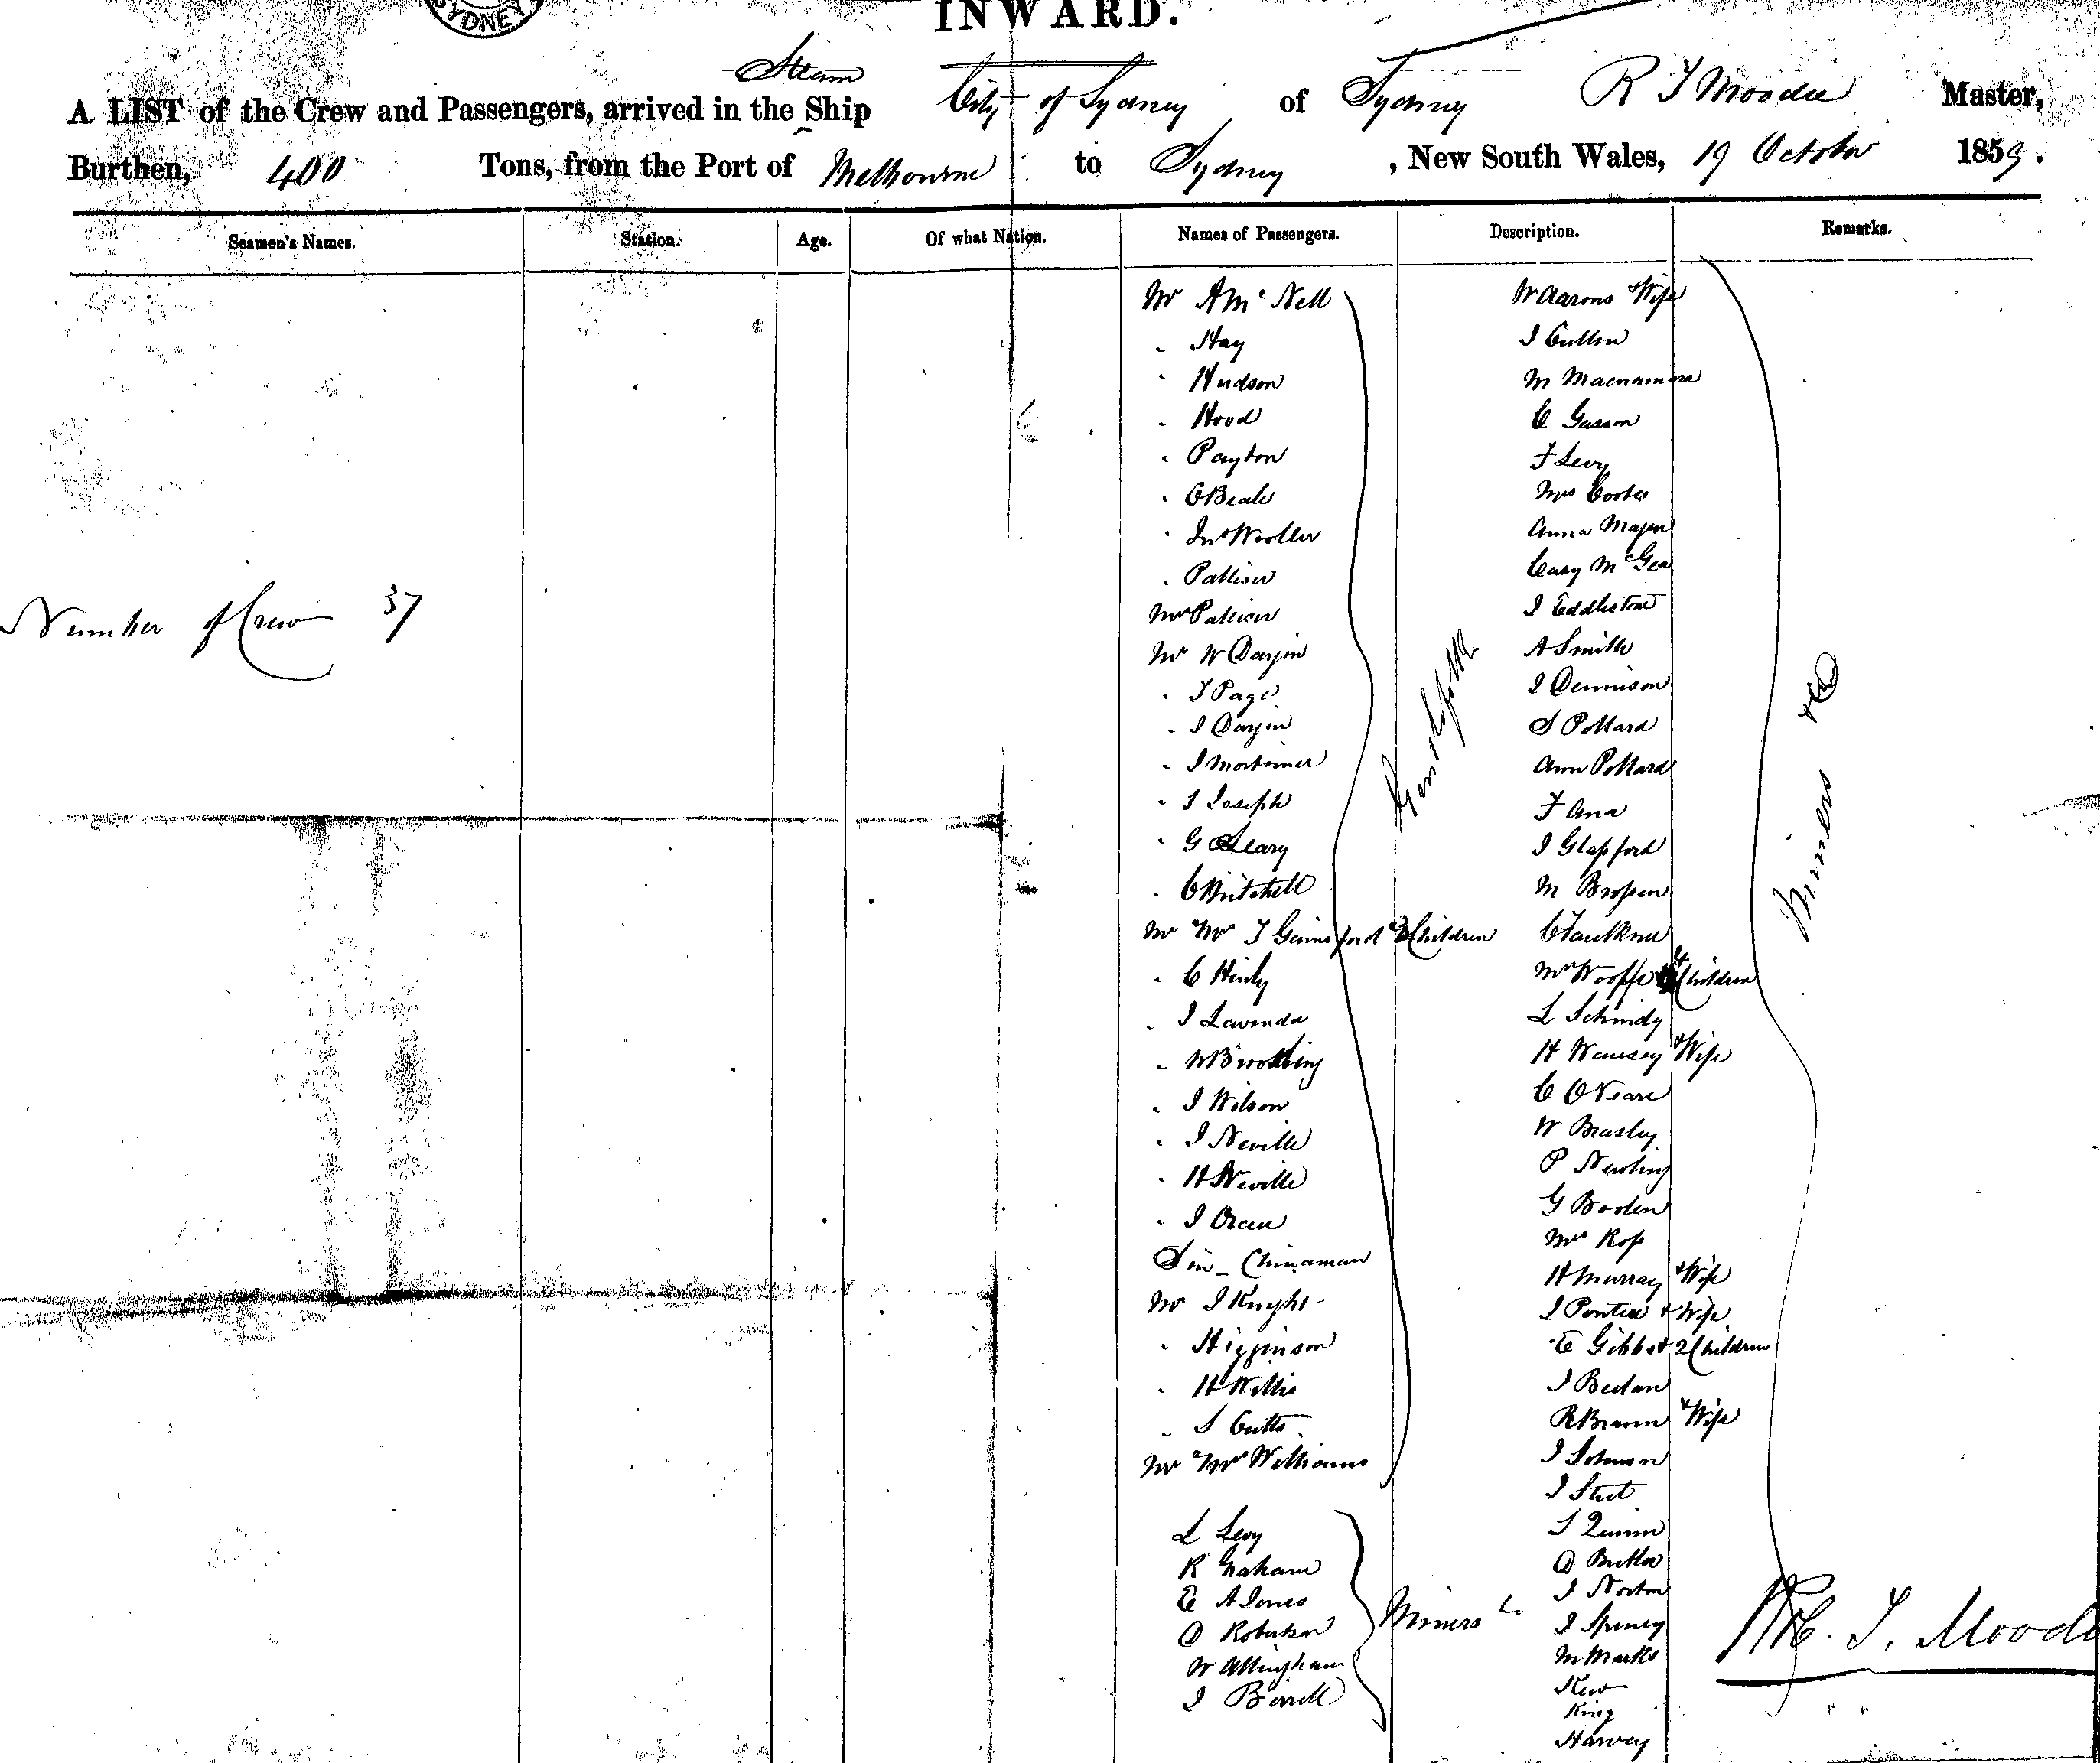 SYDNEY
INWARD.
Steam
A LIST of the Crew and Passengers, arrived in the Ship City of Sydney of Sydney R T Moodie Master,
Burthen, 400 Tons, from the Port of Melbourne to Sydney, New South Wales, 19 October 1859.
Seamen's Names. Station. Age. Of what Nation. Names of Passengers. Description. Remarks.
Number of Crew 37
Mr A Mc Nell
" Hay
" Hudson
" Hood
" Payton
" C Beale
" Jno Woller
" Palliser
Mrs Palliser
Mr W Dargin
" T Page
" J Dargin
" J Mortimer
" J Joseph
" G Leary
" C Mitchell
Mr & Mrs T Gainsford & 3 Children
" C
" J Lavender
" W Brooking
" J Wilson
" J Neville
" H Neville
" J
Sin - Chinaman
Mr J Knight
" Higginson
" H Willis
" S Cutts
Mr & Mrs Williams
Gentlefolk
L Levy
R Graham
E A Jones
D Robertson
W Allingham
J Birrell
Miners &c
W Aarons & Wife
J Cullen
M Macnamara
C Gasson
F Levy
Mrs
Anna
Casy McGea
J Eddlestone
A Smith
J Dennison
S Pollard
Ann Pollard
F Ana
J Glassford
M
C Faulkner
Mrs & 4 Children
L
H & Wife
C
W
P Newling
G Boolen
Mrs Ross
H Murray & Wife
J & Wife
E Gibbs & 2 Children
J
R Brown & Wife
J Johnson
J
J Quinn
D Butler
J Norton
J
M Marks
Kew
King
Harvey
Miners &c
R. T. Moodie